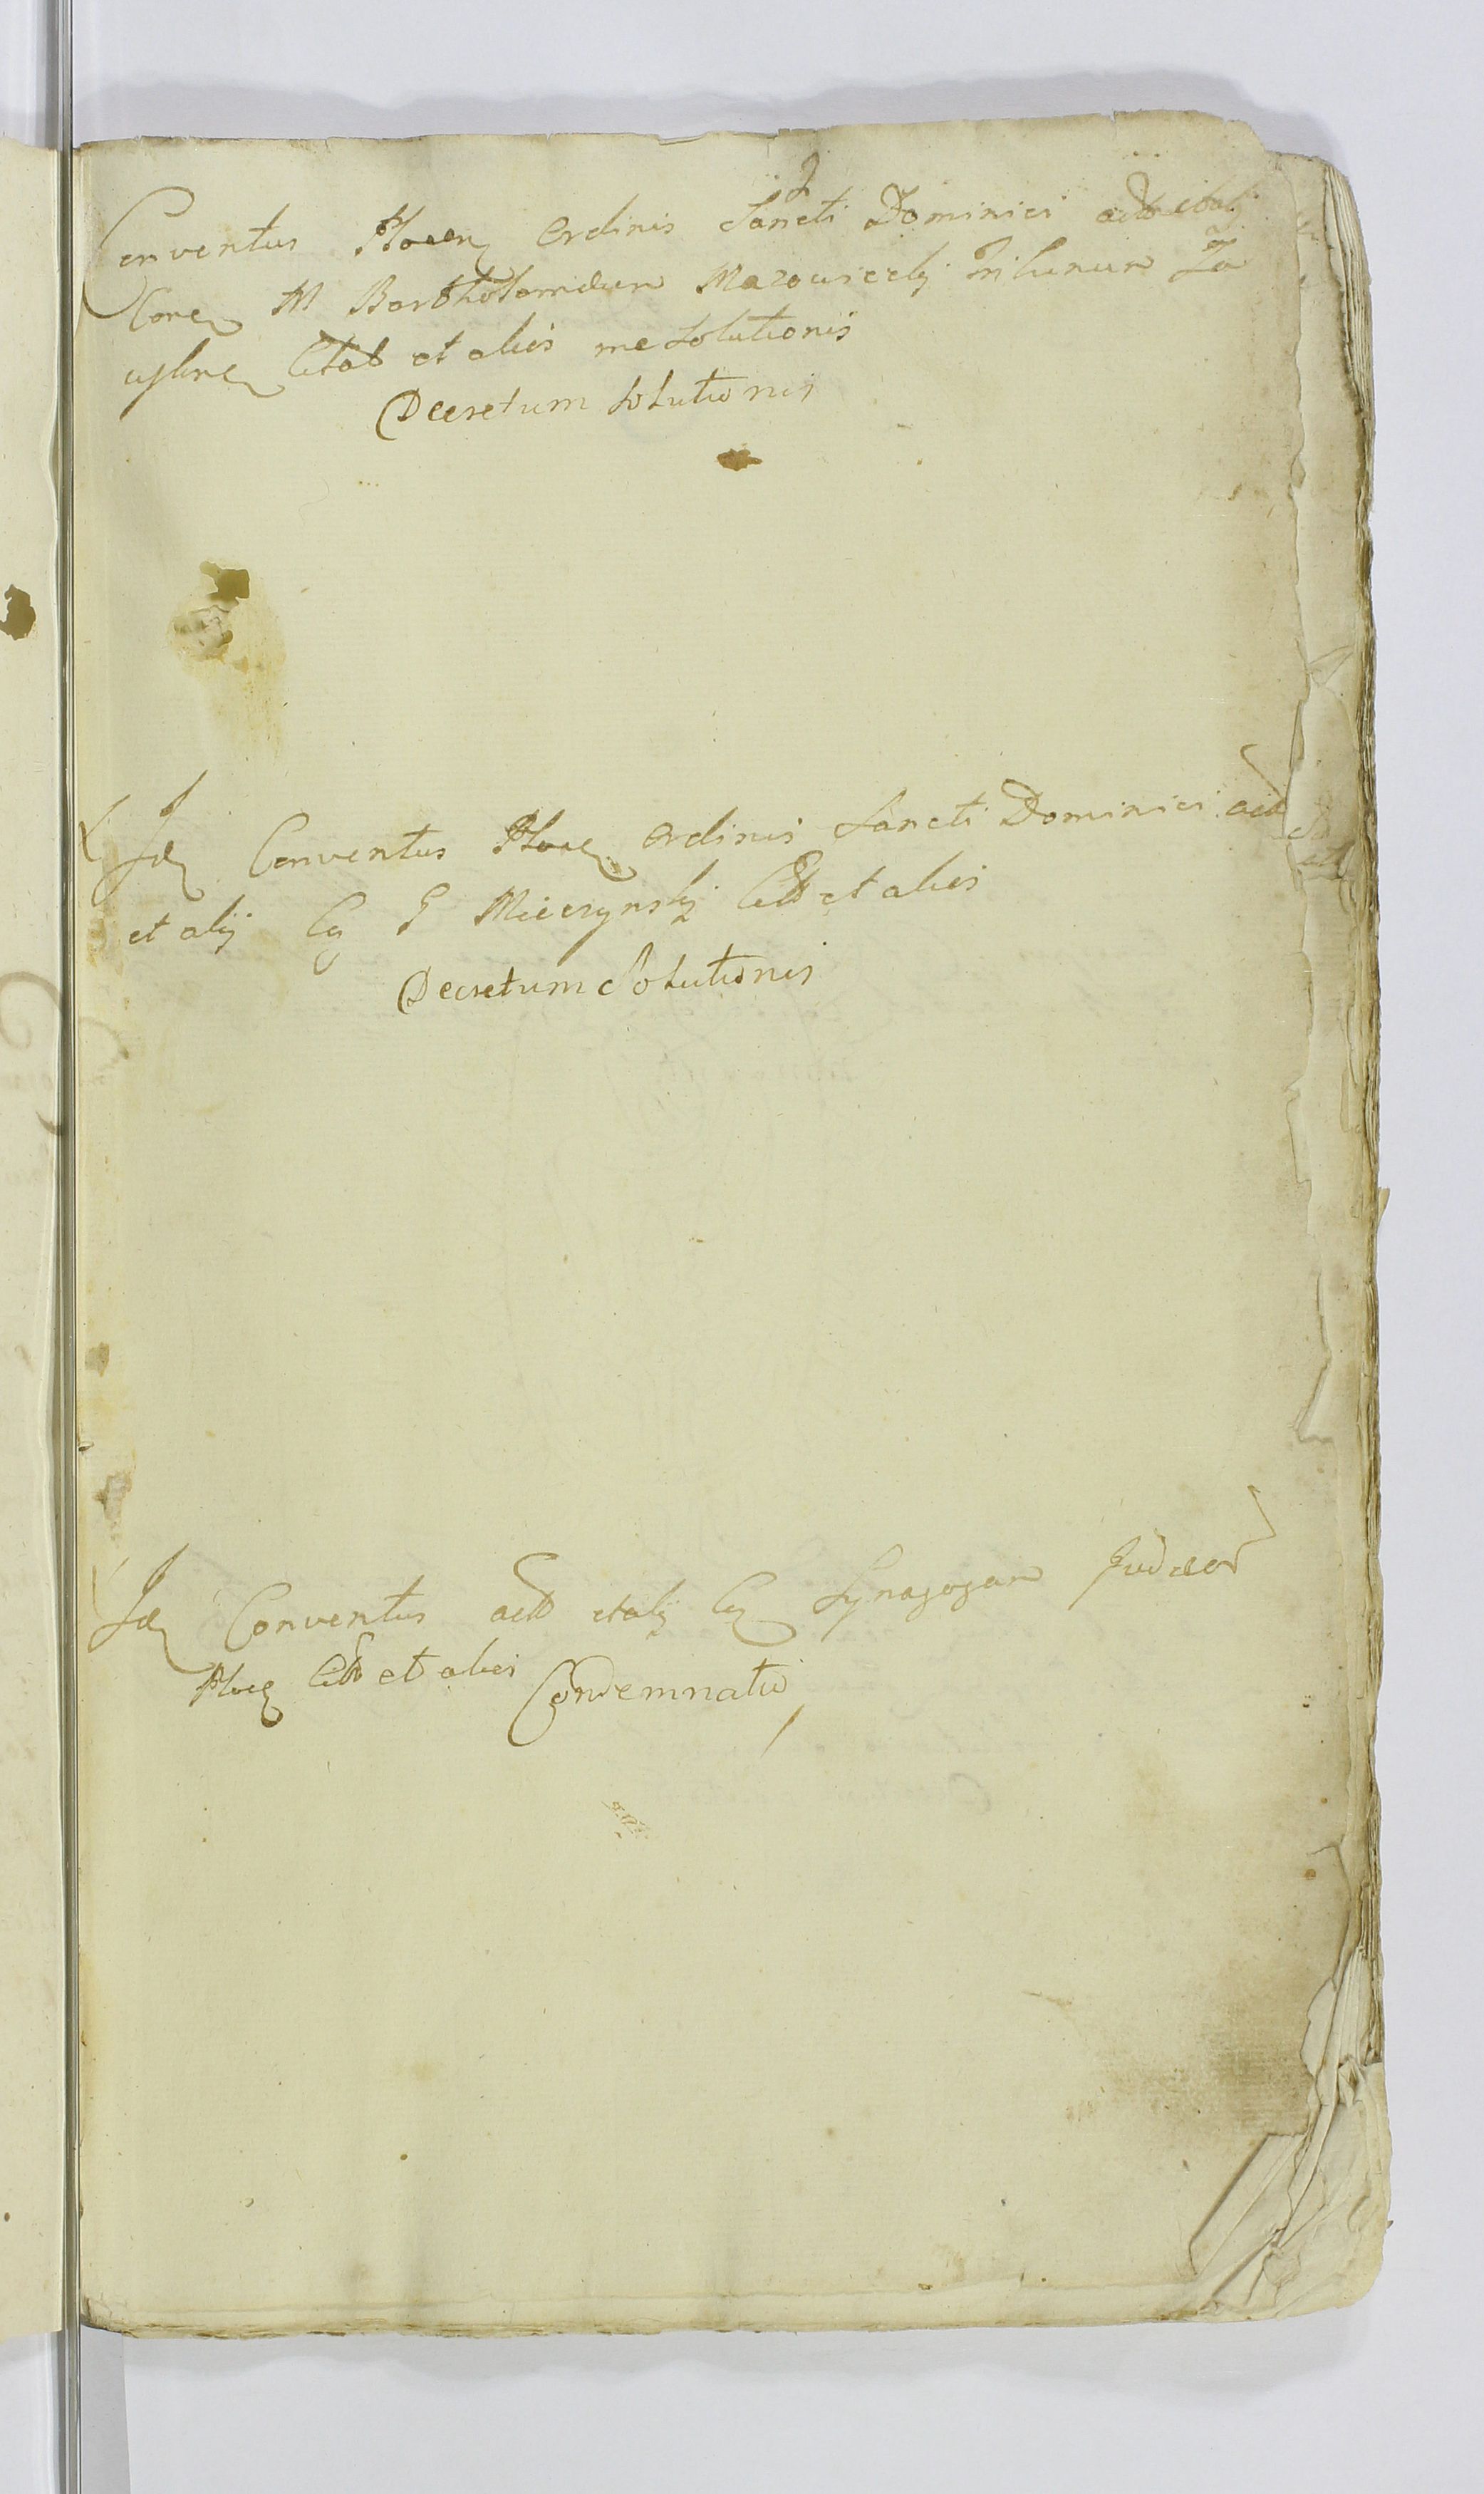 Conventus Plocen Ordinis Sancti Dominici act et alij
Conen M Bartholomeum Mazowiecky Tribunum Za
uskren Citat et alios me Solutionis
Decretum Solutionis
Id Conventus Ploce Ordinis Sancti Dominici act
et alij Cg G Mieczynsky Citt et alios
Decretum Solutionis
Id Conventus act et alij Cg Synagogam Judæor
Ploce Citt et alios Condemnatio